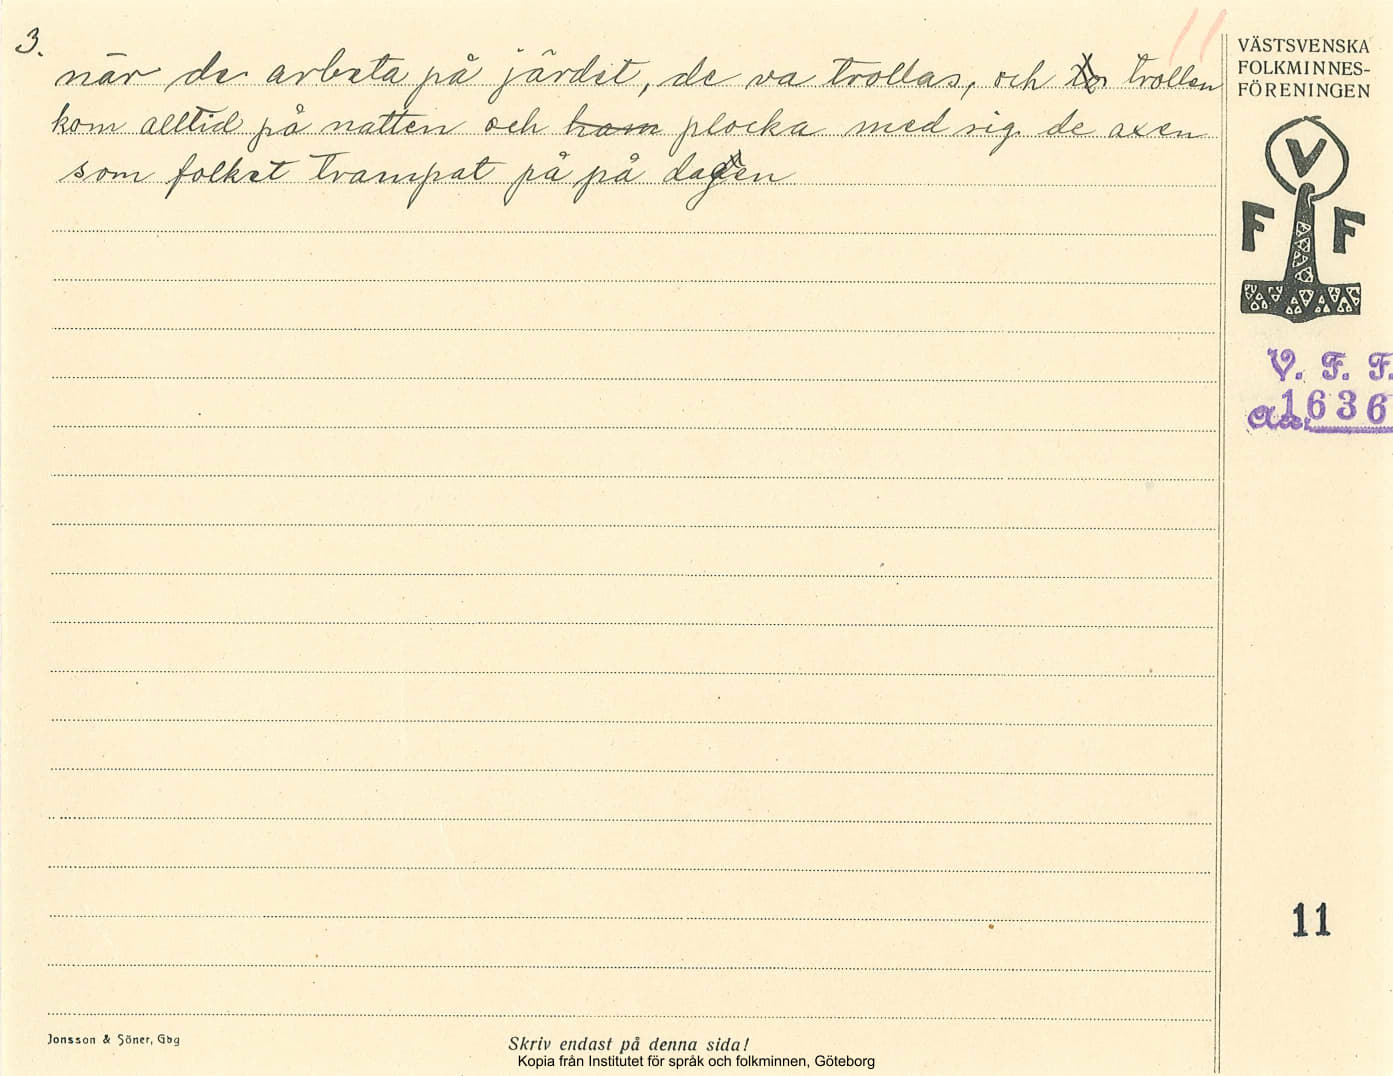 3.
11
när de arbeta på järdet, de va trollas, och trollen
kom alltid på natten och kom plocka med sig de axen
som folket trampat på på dagen
VÄSTSVENSKA
FOLKMINNES-
FÖRENINGEN
V
F F
V. F. F.
1636
11
Jonsson & Söner, Gbg
Skriv endast på denna sida!
Kopia från Institutet för språk och folkminnen, Göteborg